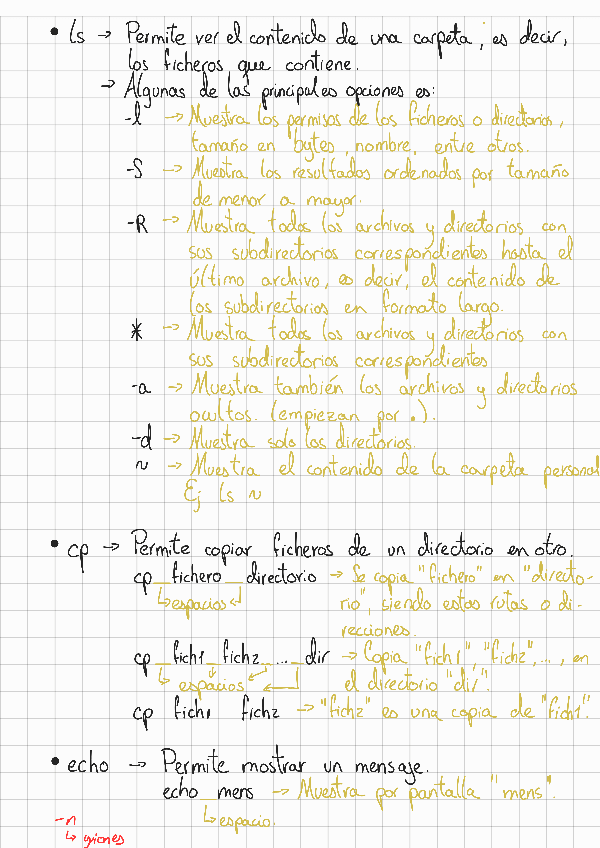 • ls → Permite ver el contenido de una carpeta, es decir,
los ficheros que contiene.
→ Algunas de las principales opciones es:
-l → Muestra los permisos de los ficheros o directorios,
tamaño en bytes, nombre, entre otros.
-S → Muestra los resultados ordenados por tamaño
de menor a mayor.
-R → Muestra todos los archivos y directorios con
sus subdirectorios correspondientes hasta el
último archivo, es decir, el contenido de
los subdirectorios en formato largo.
* → Muestra todos los archivos y directorios con
sus subdirectorios correspondientes
-a → Muestra también los archivos y directorios
ocultos. (empiezan por .).
-d → Muestra solo los directorios.
~ → Muestra el contenido de la carpeta personal
Ej ls ~
• cp → Permite copiar ficheros de un directorio en otro.
cp fichero directorio → Se copia "fichero" en "directo-
↳ espacios ↲ rio", siendo estos rutas o di-
recciones.
cp fich1 fich2 ... dir → Copia "fich1", "fich2", ..., en
↳ espacios ↲ el directorio "dir".
cp fich1 fich2 → "fich2" es una copia de "fich1".
• echo → Permite mostrar un mensaje.
echo mens → Muestra por pantalla "mens".
↳ espacio.
-n
↳ guiones